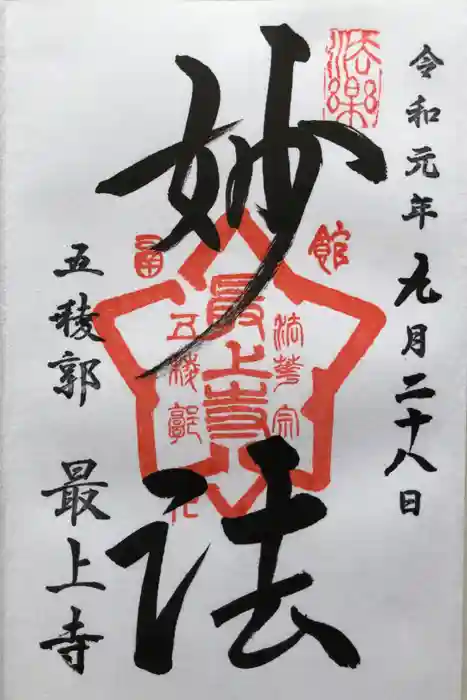 令和元年九月二十八日
法樂
妙法
函
館
法華宗
最上寺
五稜郭
五稜郭 最上寺